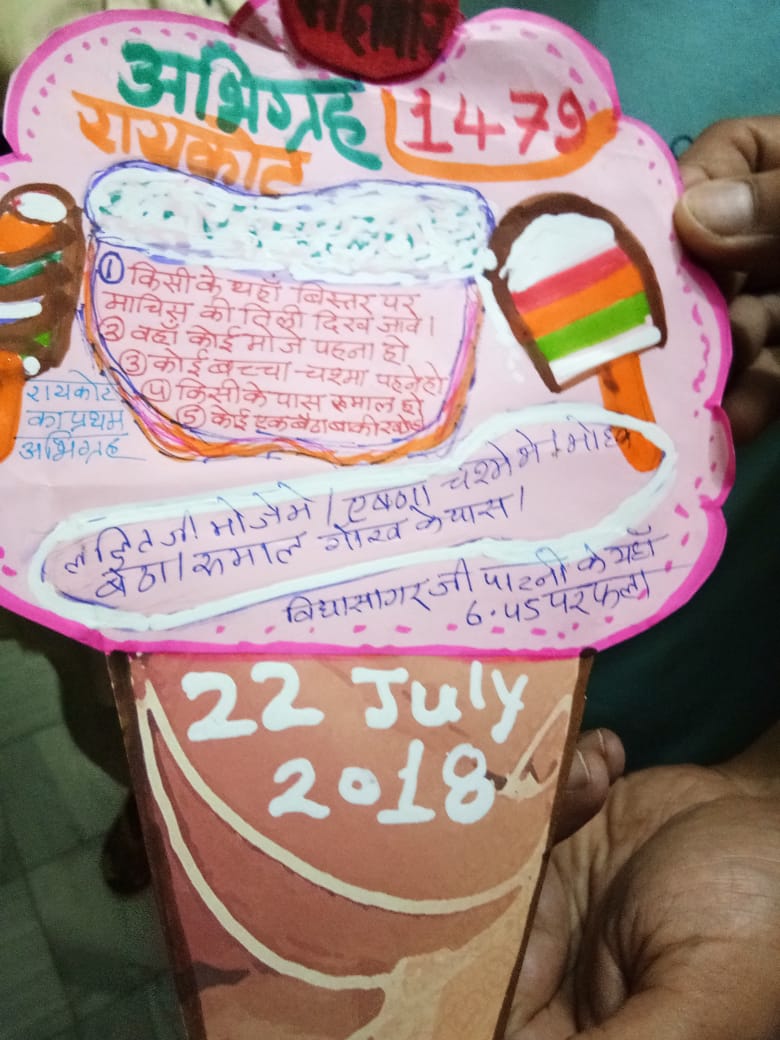 महावीर
अभिग्रह 1479
रायकोट
① किसी के यहाँ बिस्तर पर
माचिस की तिली दिख जावे।
② वहाँ कोई मोजे पहना हो
③ कोई बच्चा-चश्मा पहने हो
④ किसी के पास रुमाल हो
⑤ कोई एक बैठा बाकी खड़े
रायकोट
का प्रथम
अभिग्रह
जी मोजे मे। एषणा चश्मे मे।
बैठा। रुमाल के पास।
विद्यासागर जी पाटनी के यहाँ
6.45 पर फला
22 July
2018